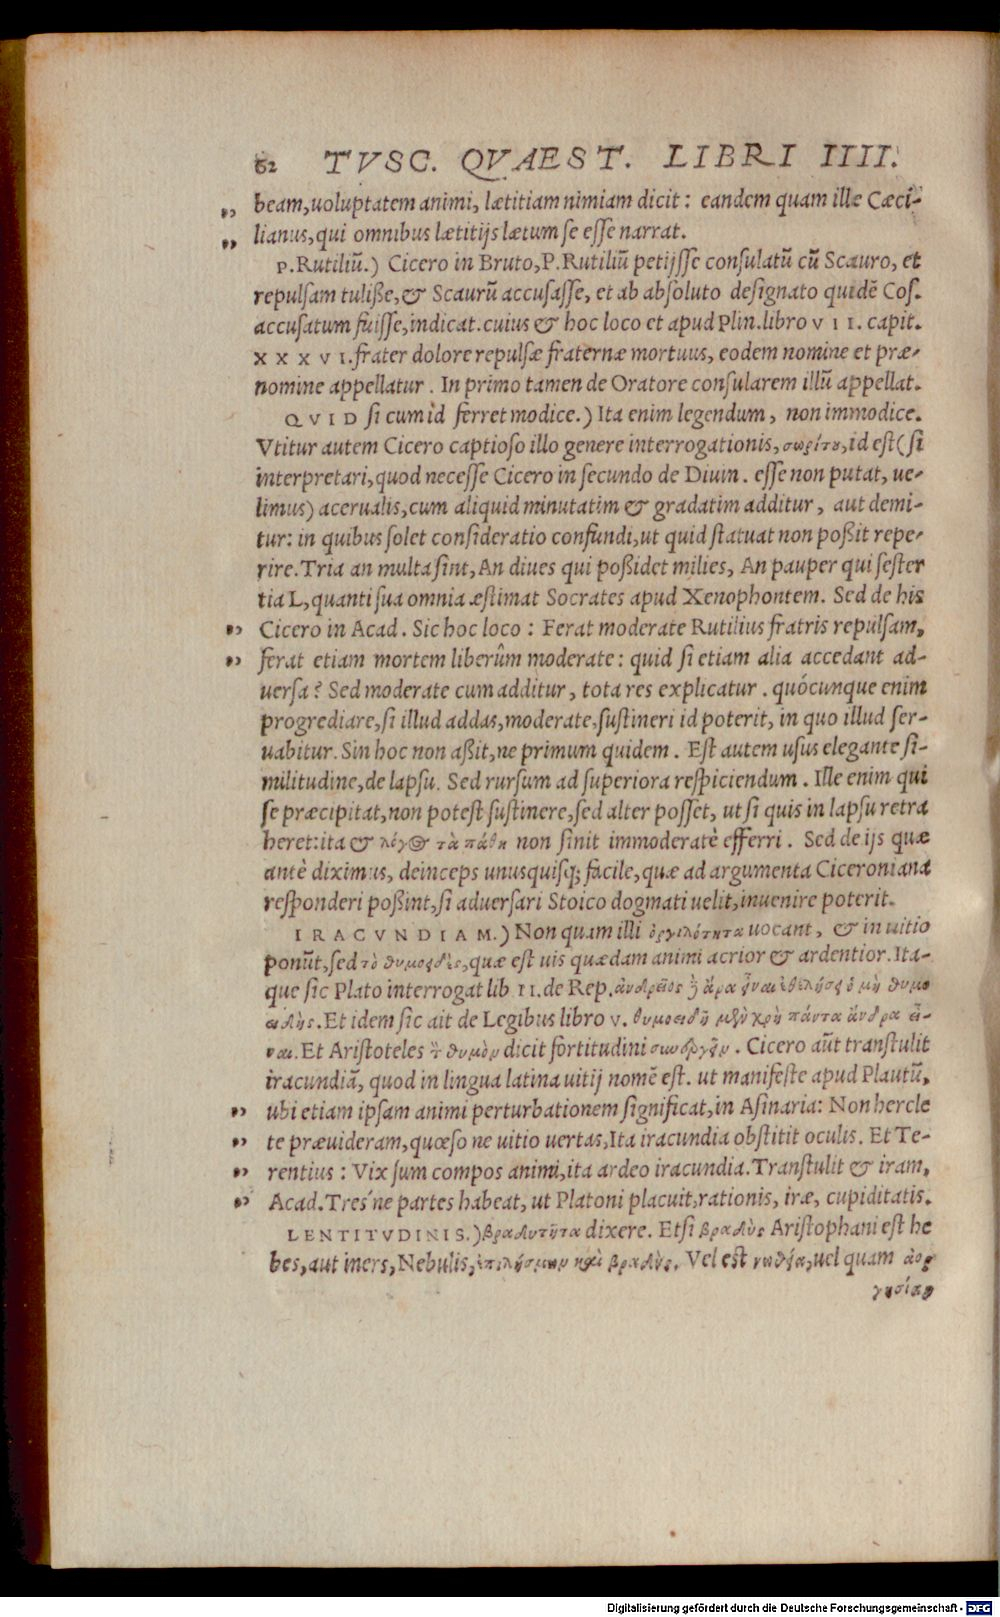 62 TVSC. QVAEST. LIBRI IIII.
„ beam,uoluptatem animi, lætitiam nimiam dicit: eandem quam ille Cæci-
„ lianus,qui omnibus lætitijs lætum se esse narrat.
P.Rutiliū.) Cicero in Bruto,P.Rutiliū petijsse consulatū cū Scauro, et
repulsam tuliße,& Scaurū accusasse, et ab absoluto designato quidē Cos.
accusatum fuisse,indicat.cuius & hoc loco et apud Plin.libro VII. capit.
XXXVI.frater dolore repulsæ fraternæ mortuus, eodem nomine et præ-
nomine appellatur. In primo tamen de Oratore consularem illū appellat.
QVID si cum id ferret modice.) Ita enim legendum, non immodice.
Vtitur autem Cicero captioso illo genere interrogationis, σωρίτου,id est(si
interpretari,quod necesse Cicero in secundo de Diuin. esse non putat, ue-
limus) acerualis,cum aliquid minutatim & gradatim additur, aut demi-
tur: in quibus solet consideratio confundi,ut quid statuat non poßit repe-
rire.Tria an multa sint, An diues qui poßidet milies, An pauper qui sester
tia L,quanti sua omnia æstimat Socrates apud Xenophontem. Sed de his
„ Cicero in Acad. Sic hoc loco: Ferat moderate Rutilius fratris repulsam,
„ ferat etiam mortem liberûm moderate: quid si etiam alia accedant ad-
uersa? Sed moderate cum additur, tota res explicatur. quócunque enim
progrediare,si illud addas,moderate,sustineri id poterit, in quo illud ser-
uabitur. Sin hoc non aßit,ne primum quidem. Est autem usus elegante si-
militudine,de lapsu. Sed rursum ad superiora respiciendum. Ille enim qui
se præcipitat,non potest sustinere,sed alter posset, ut si quis in lapsu retra
heret:ita & λόγος τὰ πάθη non sinit immoderatè efferri. Sed de ijs quæ
antè diximus, deinceps unusquisq; facile,quæ ad argumenta Ciceroniana
responderi poßint,si aduersari Stoico dogmati uelit,inuenire poterit.
IRACVNDIAM.) Non quam illi ὀργιλότητα uocant, & in uitio
ponūt,sed τὸ θυμοειδὲς,quæ est uis quædam animi acrior & ardentior. Ita-
que sic Plato interrogat lib II. de Rep. ἀνδρεῖος ἢ ἄρα εἶναι ἐθελήσει ὁ μὴ θυμο
ειδὴς. Et idem sic ait de Legibus libro V. θυμοειδῆ μὲν χρὴ πάντα ἄνδρα εἶ-
ναι. Et Aristoteles τὸν θυμὸν dicit fortitudini συνεργεῖν. Cicero aūt transtulit
iracundiā, quod in lingua latina uitij nomē est. ut manifeste apud Plautū,
„ ubi etiam ipsam animi perturbationem significat,in Asinaria: Non hercle
„ te præuideram,quæso ne uitio uertas,Ita iracundia obstitit oculis. Et Te-
„ rentius: Vix sum compos animi,ita ardeo iracundia.Transtulit & iram,
„ Acad.Tres'ne partes habeat, ut Platoni placuit,rationis, iræ, cupiditatis.
LENTITVDINIS.) βραδυτῆτα dixere. Etsi βραδὺς Aristophani est he
bes,aut iners,Nebulis, ἐπιλήσμων καὶ βραδὺς. Vel est νωθεία,uel quam ἀορ
γησίαν